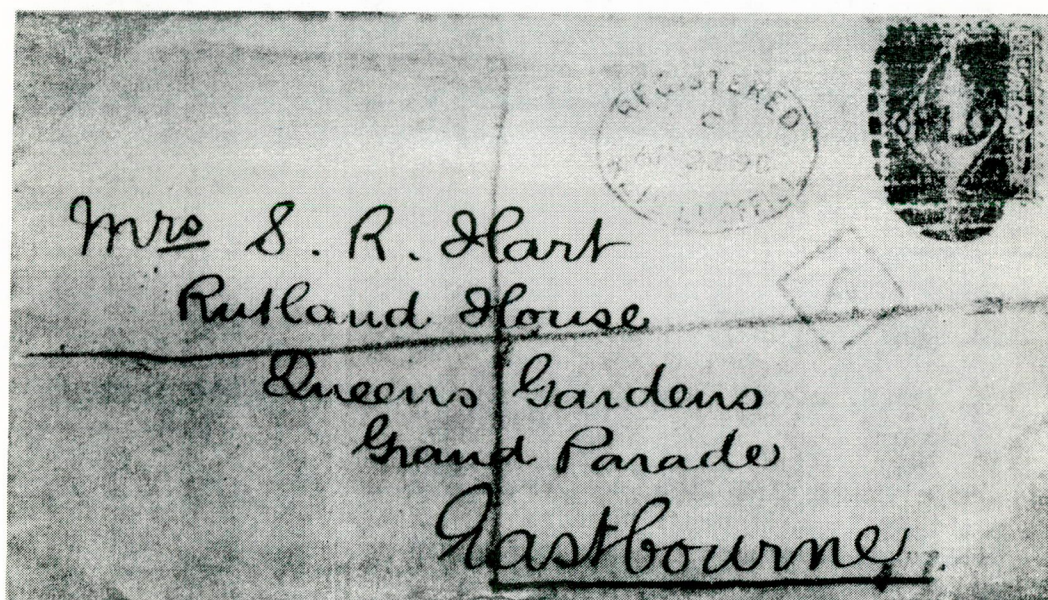 REGISTERED
C
22 90
Mrs S. R. Hart
Rutland House
Queens Gardens
Grand Parade
Eastbourne